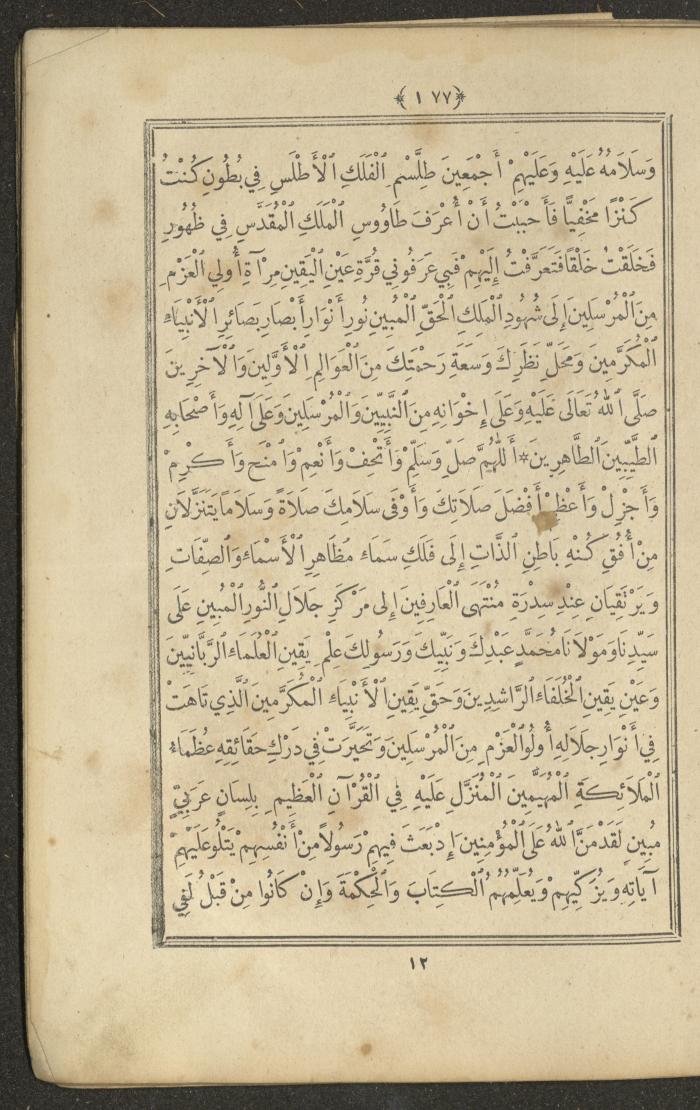 ﴿١٧٧﴾
وَسَلَامُهُ عَلَيْهِ وَعَلَيْهِمْ أَجْمَعِينَ طِلَّسْمِ ٱلْفَلَكِ ٱلْأَطْلَسِ فِي بُطُونِ كُنْتُ
كَنْزًا مَخْفِيًّا فَأَحْبَبْتُ أَنْ أُعْرَفَ طَاوُوسِ ٱلْمَلَكِ ٱلْمُقَدَّسِ فِي ظُهُورِ
فَخَلَقْتُ خَلْقًا فَتَعَرَّفْتُ إِلَيْهِمْ فَبِي عَرَفُونِي قُرَّةِ عَيْنِ ٱلْيَقِينِ مِرْآةِ أُولِي ٱلْعَزْمِ
مِنَ ٱلْمُرْسَلِينَ إِلَى شُهُودِ ٱلْمَلِكِ ٱلْحَقِّ ٱلْمُبِينِ نُورِ أَنْوَارِ أَبْصَارِ بَصَائِرِ ٱلْأَنْبِيَاءِ
ٱلْمُكَرَّمِينَ وَمَحَلِّ نَظَرِكَ وَسَعَةِ رَحْمَتِكَ مِنَ ٱلْعَوَالِمِ ٱلْأَوَّلِينَ وَٱلْآخِرِينَ
صَلَّى ٱللهُ تَعَالَى عَلَيْهِ وَعَلَى إِخْوَانِهِ مِنَ ٱلنَّبِيِّينَ وَٱلْمُرْسَلِينَ وَعَلَى آلِهِ وَأَصْحَابِهِ
ٱلطَّيِّبِينَ ٱلطَّاهِرِينَ * أَللّٰهُمَّ صَلِّ وَسَلِّمْ وَأَتْحِفْ وَأَنْعِمْ وَٱمْنَحْ وَأَكْرِمْ
وَأَجْزِلْ وَأَعْظِمْ أَفْضَلَ صَلَاتِكَ وَأَوْفَى سَلَامِكَ صَلَاةً وَسَلَامًا يَتَنَزَّلَانِ
مِنْ أُفُقِ كُنْهِ بَاطِنِ ٱلذَّاتِ إِلَى فَلَكِ سَمَاءِ مَظَاهِرِ ٱلْأَسْمَاءِ وَٱلصِّفَاتِ
وَيَرْتَقِيَانِ عِنْدِ سِدْرَةِ مُنْتَهَى ٱلْعَارِفِينَ إِلَى مَرْكَزِ جَلَالِ ٱلنُّورِ ٱلْمُبِينِ عَلَى
سَيِّدِنَا وَمَوْلَانَا مُحَمَّدٍ عَبْدِكَ وَنَبِيِّكَ وَرَسُولِكَ عِلْمِ يَقِينِ ٱلْعُلَمَاءِ ٱلرَّبَّانِيِّينَ
وَعَيْنِ يَقِينِ ٱلْخُلَفَاءِ ٱلرَّاشِدِينَ وَحَقِّ يَقِينِ ٱلْأَنْبِيَاءِ ٱلْمُكَرَّمِينَ ٱلَّذِي تَاهَتْ
فِي أَنْوَارِ جَلَالِهِ أُولُو ٱلْعَزْمِ مِنَ ٱلْمُرْسَلِينَ وَتَحَيَّرَتْ فِي دَرْكِ حَقَائِقِهِ عُظَمَاءُ
ٱلْمَلَائِكَةِ ٱلْمُهَيَّمِينَ ٱلْمُنَزَّلِ عَلَيْهِ فِي ٱلْقُرْآنِ ٱلْعَظِيمِ بِلِسَانٍ عَرَبِيٍّ
مُبِينٍ لَقَدْ مَنَّ ٱللهُ عَلَى ٱلْمُؤْمِنِينَ إِذْ بَعَثَ فِيهِمْ رَسُولًا مِنْ أَنْفُسِهِمْ يَتْلُو عَلَيْهِمْ
آيَاتِهِ وَيُزَكِّيهِمْ وَيُعَلِّمُهُمُ ٱلْكِتَابَ وَٱلْحِكْمَةَ وَإِنْ كَانُوا مِنْ قَبْلُ لَفِي
١٢